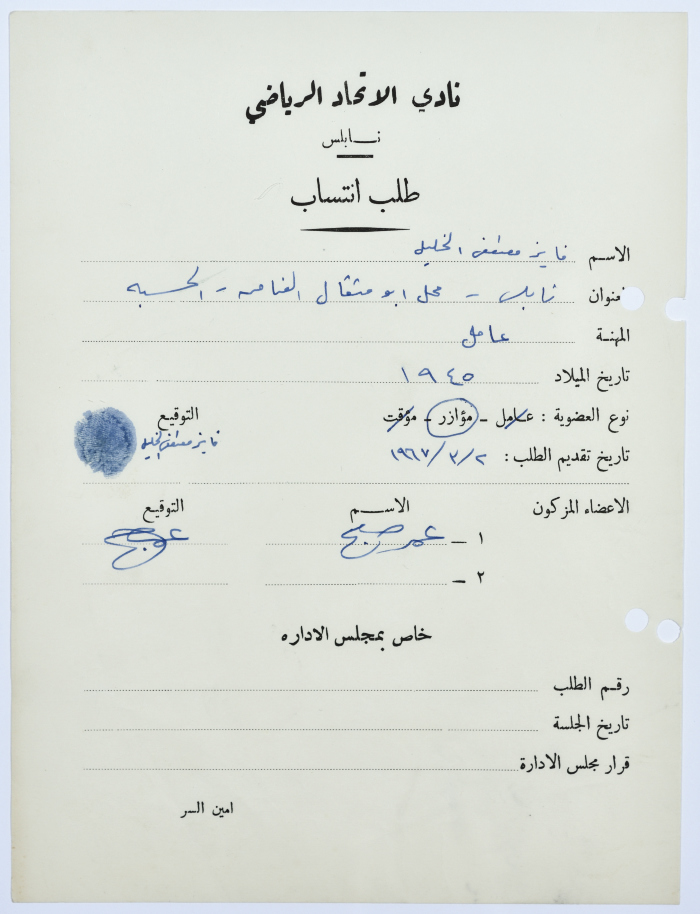 نادي الاتحاد الرياضي
نابلس
طلب انتساب
الاسم فايز مصطفى الخليل
العنوان نابلس - محل ابو مثقال القناص - الحسبه
المهنة عامل
تاريخ الميلاد ١٩٤٥
نوع العضوية : عامل - مؤازر - مؤقت التوقيع
تاريخ تقديم الطلب : ١٩٦٧/٣/٢ فايز مصطفى الخليل
الاعضاء المزكون الاسم التوقيع
١ - عمر صبح
٢ -
خاص بمجلس الاداره
رقم الطلب
تاريخ الجلسة
قرار مجلس الادارة
امين السر